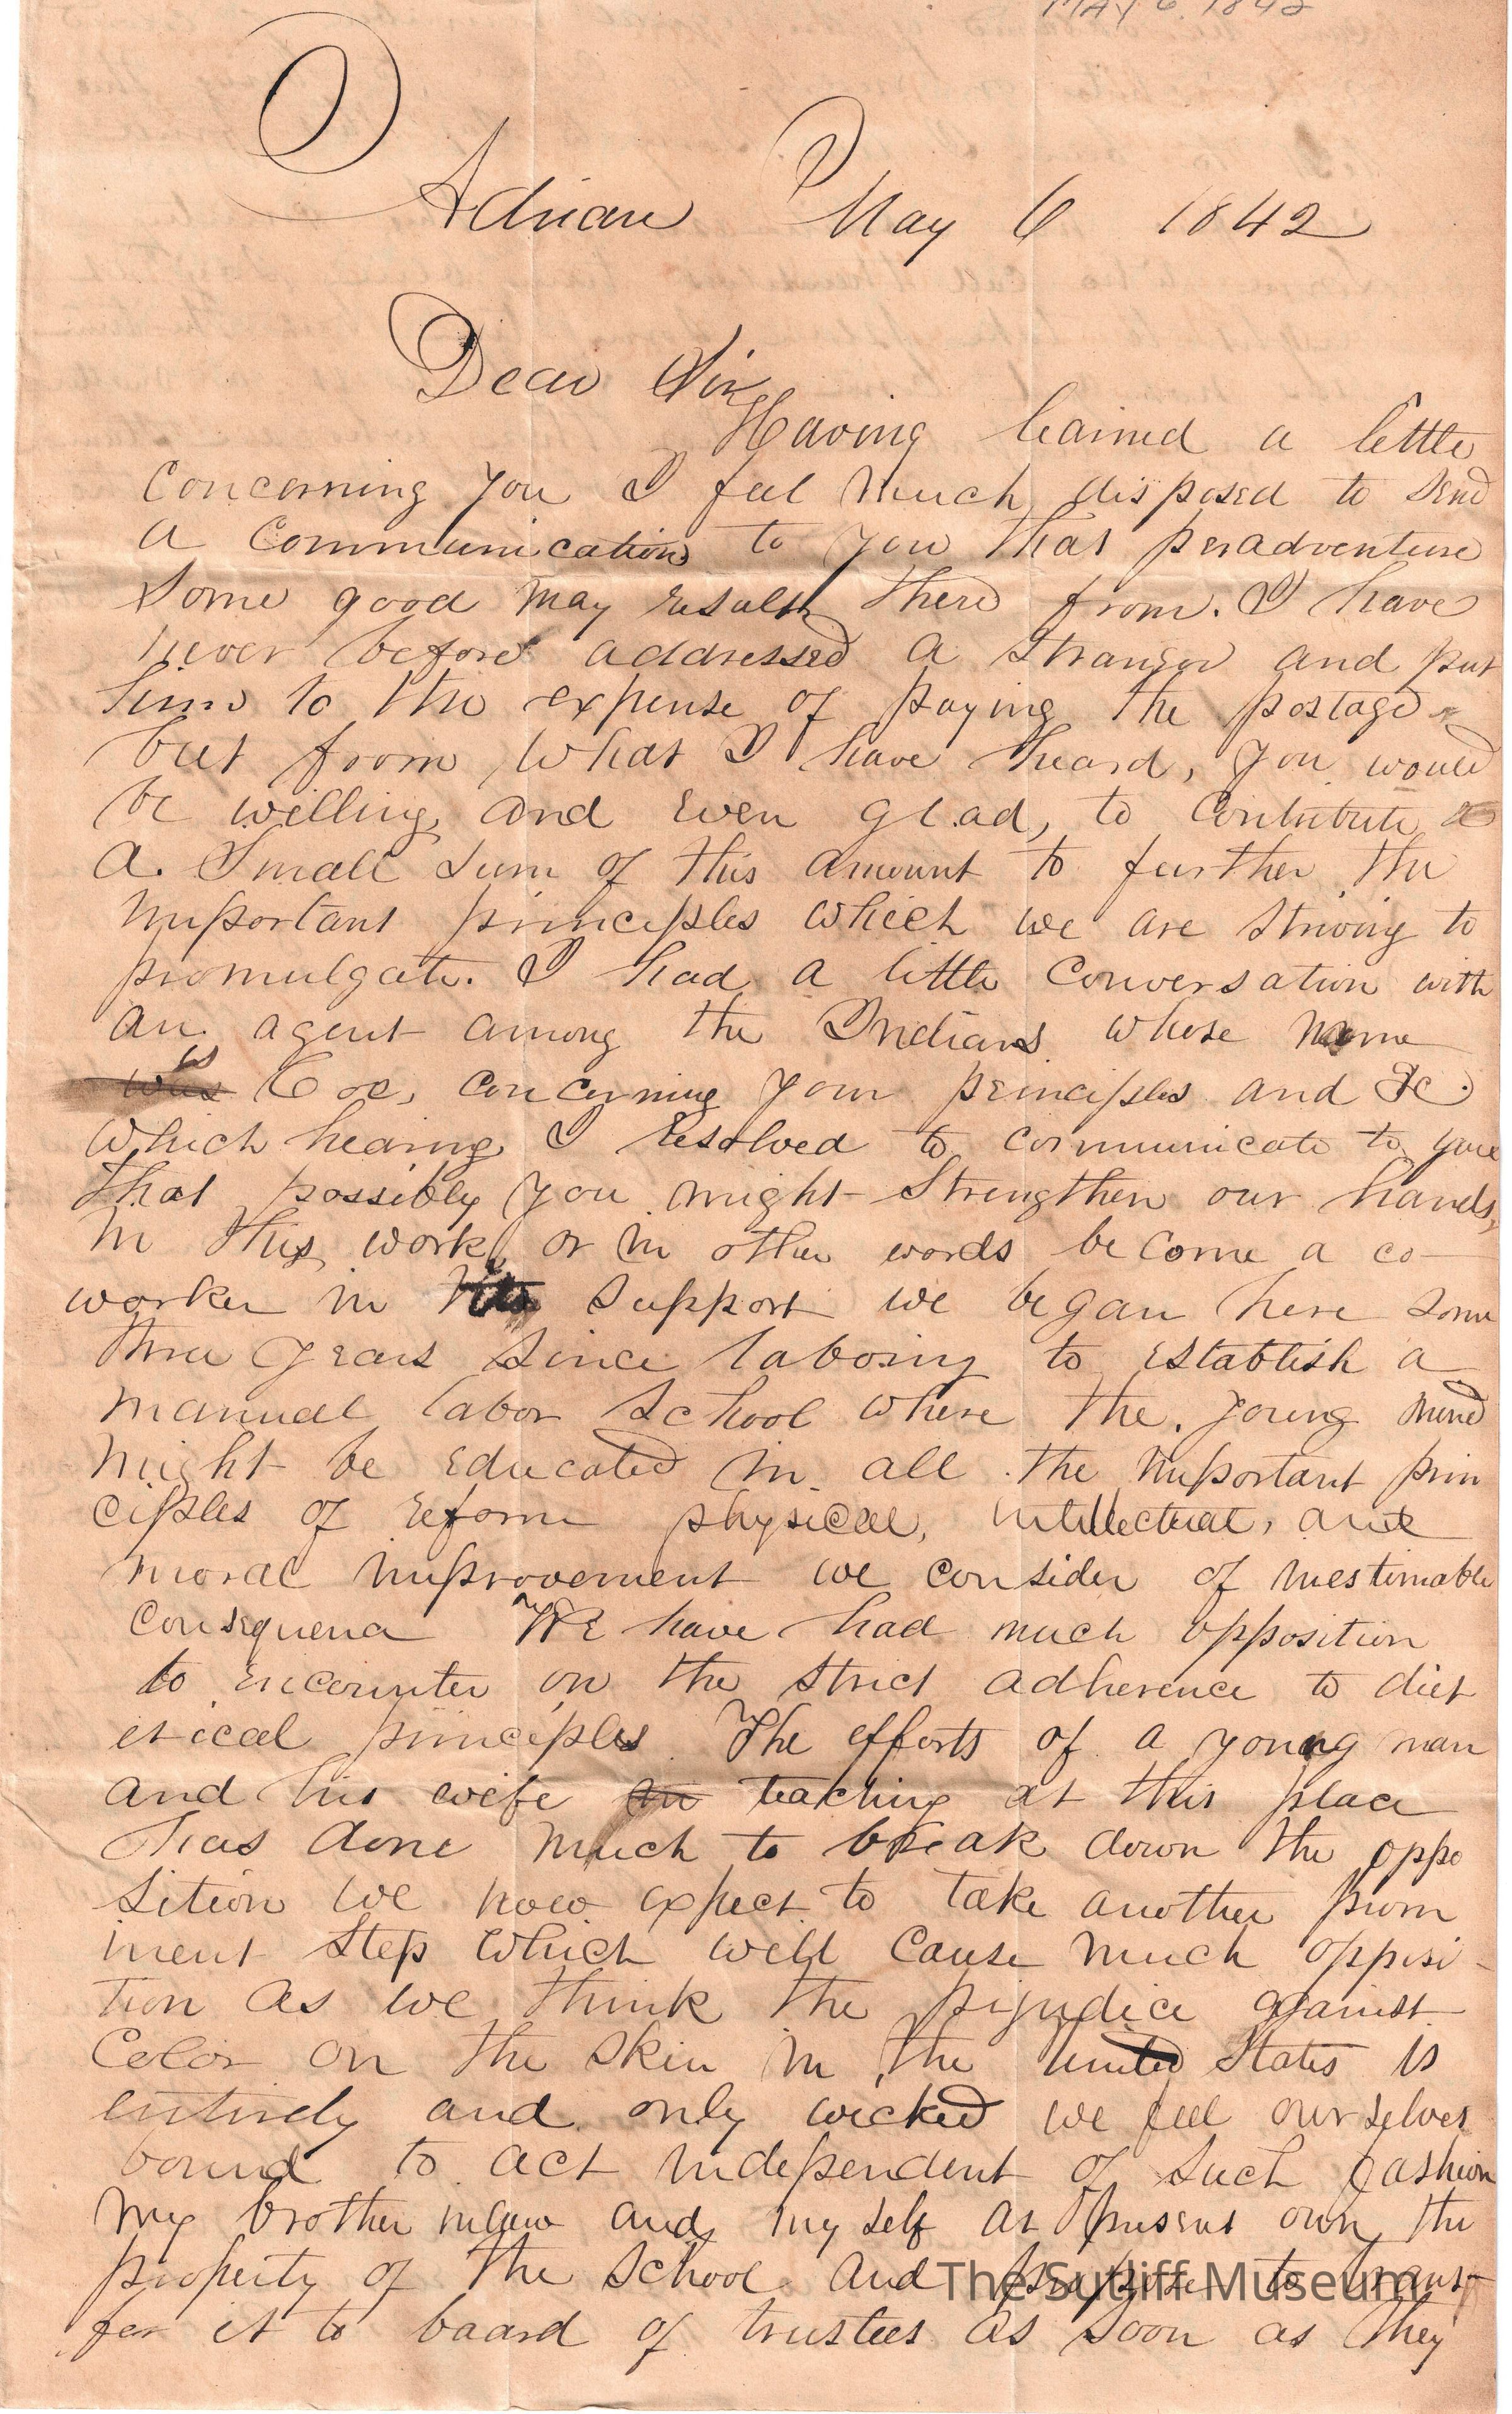 MAY 6. 1842
Adrian May 6 1842
Dear Sir
Having learned a little
concerning you I feel much disposed to send
a communication to you that peradventure
some good may result there from. I have
never before addressed a stranger and put
him to the expense of paying the postage
but from what I have heard, you would
be willing and even glad, to contribute
a. small sum of this amount to further the
important principles which we are striving to
promulgate. I had a little conversation with
an agent among the Indians whose name
is
was Coe, concerning your principles and &c.
which hearing I resolved to communicate to you
that possibly you might strengthen our hands,
in this work, or in other words become a co-
worker in its support we began here some
three years since laboring to establish a
manual labor school where the. young mind
might be educated in all the important prin
ciples of reform physical, intellectual, and
moral improvement we consider of inestimable
consequence We have had much opposition
to encounter on the strict adherence to diet
etical principles The efforts of a young man
and his wife in teaching at this place
has done much to break down the oppo
sition we now expect to take another prom
inent step which will cause much opposi-
tion as we think the prejudice against
color on the skin in the United States is
entirely and only wicked we feel ourselves
bound to act independent of such fashion
my brother inlaw and my self at present own the
property of the school and propose to trans-
fer it to baard of trustees as soon as they
The Sutliff Museum